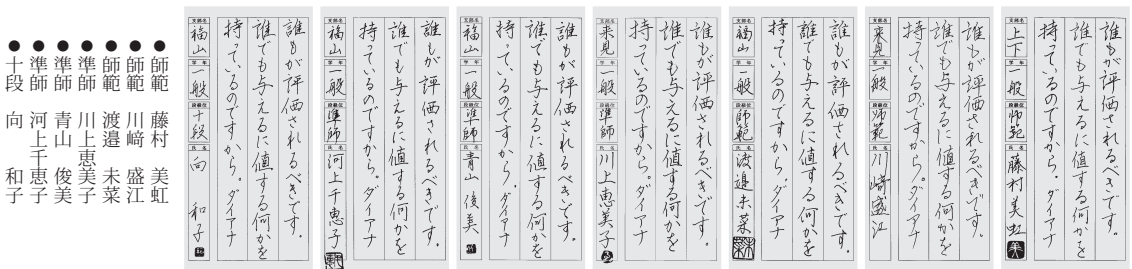 誰もが評価されるべきです。
誰でも与えるに値する何かを
持っているのですから。ダイアナ
支部名 上下 学年 一般 段級位 師範 氏名 藤村美虹
誰もが評価されるべきです。
誰でも与えるに値する何かを
持っているのですから。ダイアナ
支部名 来見 学年 一般 段級位 師範 氏名 川﨑盛江
誰もが評価されるべきです。
誰でも与えるに値する何かを
持っているのですから。ダイアナ
支部名 福山 学年 一般 段級位 師範 氏名 渡邉未菜
誰もが評価されるべきです。
誰でも与えるに値する何かを
持っているのですから。ダイアナ
支部名 来見 学年 一般 段級位 準師 氏名 川上恵美子
誰もが評価されるべきです。
誰でも与えるに値する何かを
持っているのですから。ダイアナ
支部名 福山 学年 一般 段級位 準師 氏名 青山俊美
誰もが評価されるべきです。
誰でも与えるに値する何かを
持っているのですから。ダイアナ
支部名 福山 学年 一般 段級位 準師 氏名 河上千恵子
誰もが評価されるべきです。
誰でも与えるに値する何かを
持っているのですから。ダイアナ
支部名 福山 学年 一般 段級位 十段 氏名 向和子
●師範 藤村 美虹
●師範 川﨑 盛江
●師範 渡邉 未菜
●準師 川上恵美子
●準師 青山 俊美
●準師 河上千恵子
●十段 向 和子